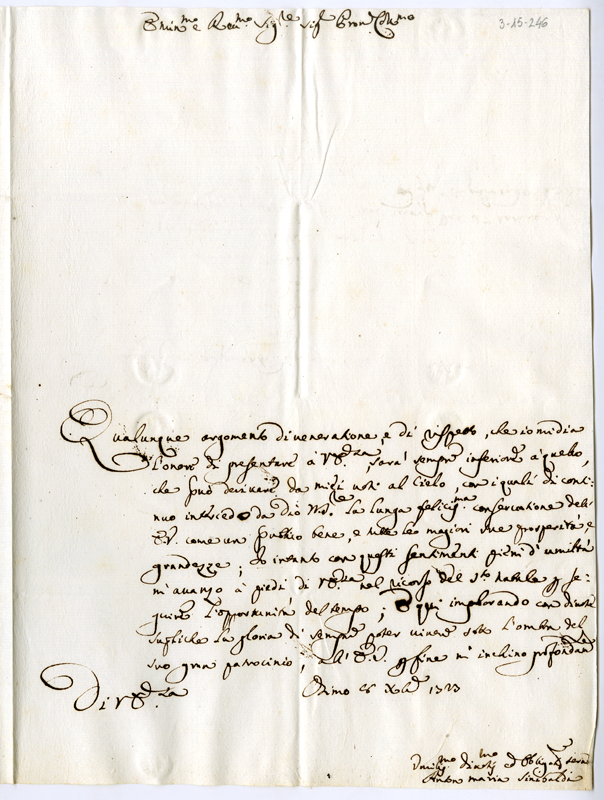 Emin:mo e Reu:mo Sig:re Sig:r Pron: Col:mo
3-15-246
Qualunque argomento di veneratione, e di rispetto, che io mi dia
l'onore di presentare à V:Em:za sarà sempre inferiore à quello,
che può derivare da miei voti al Cielo, con i quali di conti-
nuo intercedo da Dio la lunga feliciss:ma conservatione dell'
E.V. come un publico bene, e tutte le maggiori sue prosperità, e
grandezze; Io intanto con questi sentimenti pieni d'umiltà
mi avanzo à piedi di V:Em:za nel ricorso del S:to Natale p se-
guire l'opportunità del tempo; E qui implorando con divote
supliche la gloria di sempre poter vivere sotto l'ombra del
suo gran patrocinio, All'E.V. p fine mi inchino profondam:te
Di V:Em:za
Osimo 1723
Umiliss:mo Divotiss:mo ed Obligat:mo Serv:
Anton Maria Sinibaldi